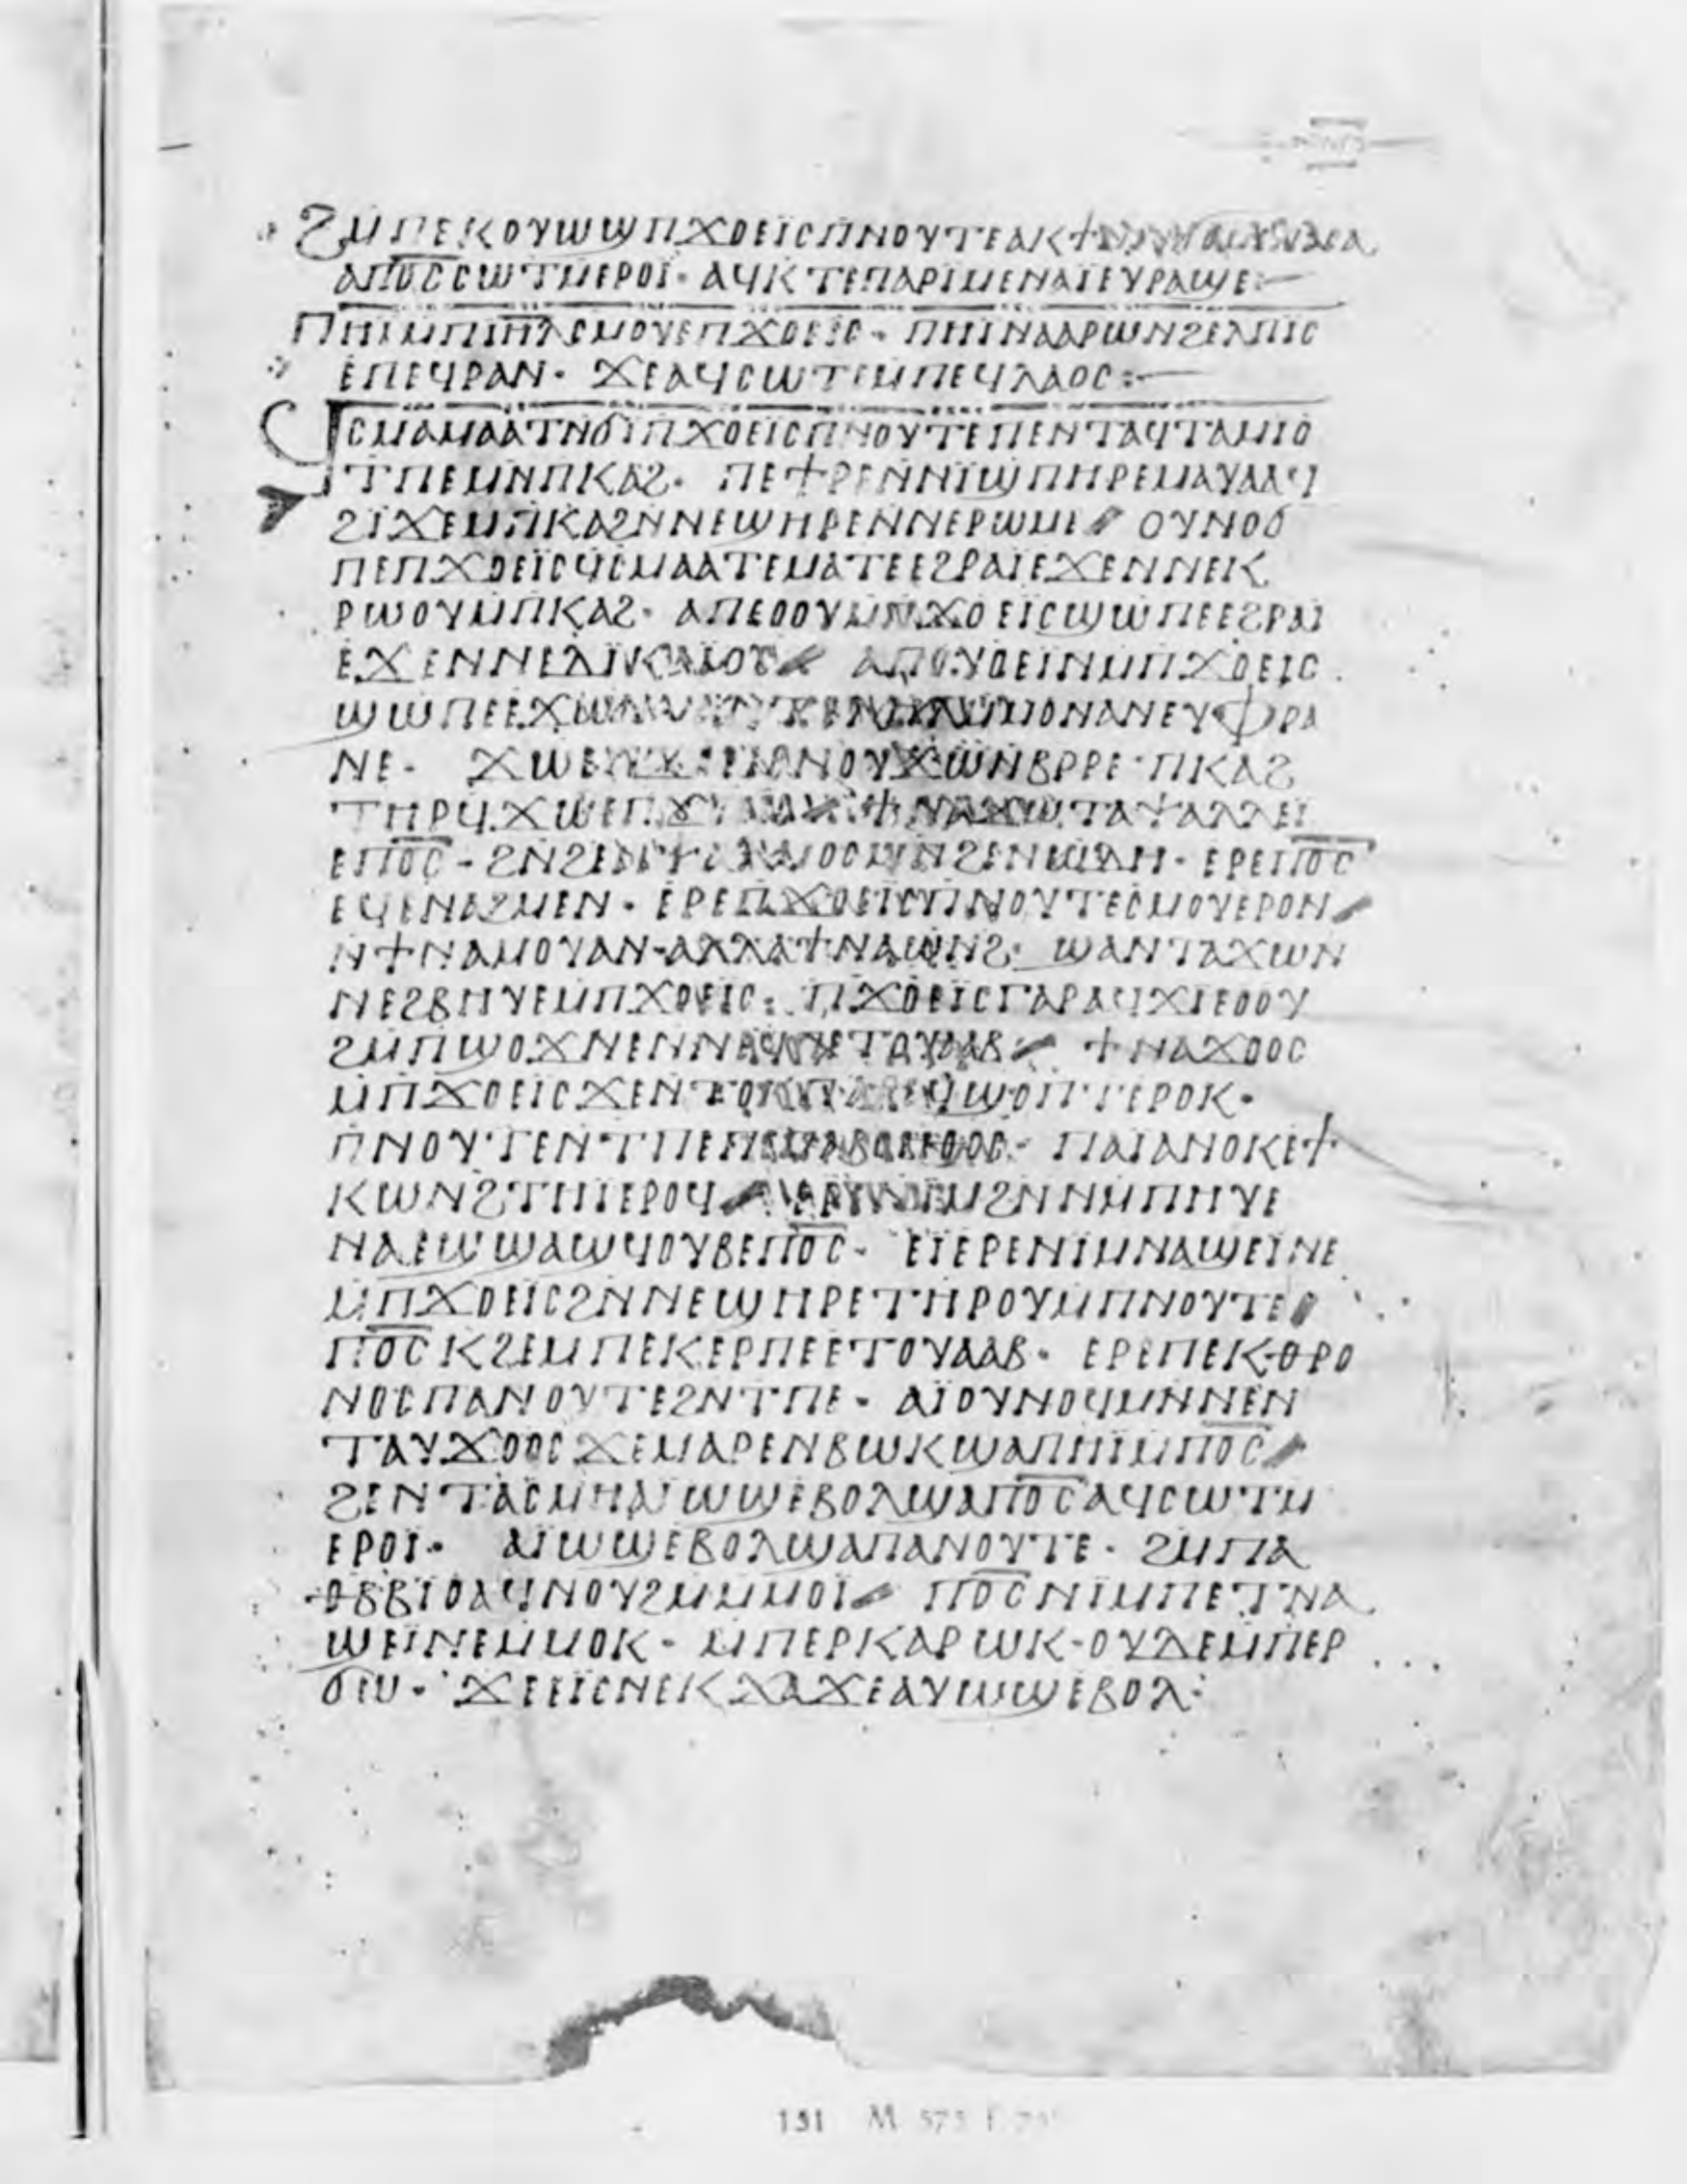 ϨⲘⲠⲈⲔⲞⲨⲰϢⲠϪⲞⲈⲒⲤⲠⲚⲞⲨⲦⲈⲀⲔϮ
ⲀⲠⲞ̅Ⲥ̅ⲤⲰⲦⲘⲈⲢⲞⲒ· ⲀϤⲔⲦⲈⲠⲀⲢⲒⲘⲈⲚⲀⲒⲈⲨⲢⲀϢⲈ:—
ⲠⲎⲒⲘⲠⲒⲎ̅Ⲗ̅ⲤⲘⲞⲨⲈⲠϪⲞⲈⲒⲤ· ⲠⲎⲒⲚⲀⲀⲢⲰⲚϨⲈⲖⲠⲒⲤ
ⲈⲠⲈϤⲢⲀⲚ· ϪⲈⲀϤⲤⲰⲦⲈⲘⲠⲈϤⲖⲀⲞⲤ:—
ϤⲤⲘⲀⲘⲀⲀⲦⲚϬⲒⲠϪⲞⲈⲒⲤⲠⲚⲞⲨⲦⲈⲠⲈⲚⲦⲀϤⲦⲀⲘⲒⲞ
ⲦⲠⲈⲘⲚⲠⲔⲀϨ· ⲠⲈϮⲢⲈⲚⲚⲒϢⲠⲎⲢⲈⲘⲀⲨⲀⲀϤ
ϨⲒϪⲈⲘⲠⲔⲀϨⲚⲚⲈϢⲎⲢⲈⲚⲚⲈⲢⲰⲘⲈ⸝ ⲞⲨⲚⲞϬ
ⲠⲈⲠϪⲞⲈⲒⲤϤⲤⲘⲀⲀⲦⲈⲘⲀⲦⲈⲈϨⲢⲀⲒⲈϪⲈⲚⲚⲈⲒⲔ
ⲢⲰⲞⲨⲘⲠⲔⲀϨ· ⲀⲠⲈⲞⲞⲨⲘⲠϪⲞⲈⲒⲤϢⲰⲠⲈⲈϨⲢⲀⲒ
ⲈϪⲈⲚⲚⲈⲆⲒⲔⲀⲒⲞⲤ⸝ ⲀⲠⲞⲨⲞⲈⲒⲚⲘⲠϪⲞⲈⲒⲤ
ϢⲰⲠⲈⲈϪⲰⲚ ⲘⲞⲚⲀⲚⲈⲨⲪⲢⲀ
ⲚⲈ· ϪⲰⲈ ⲚⲞⲨϪⲰⲚⲂⲢⲢⲈ·ⲠⲔⲀϨ
ⲦⲎⲢϤ ϪⲰⲈⲠ ϮⲚⲀϪⲰ ⲦⲀⲮⲀⲗⲗⲈⲒ
ⲈⲠⲞ̅Ⲥ̅· ⲈⲢⲈⲠⲞ̅Ⲥ̅
ⲈϤⲈⲚⲀϨⲘⲈⲚ· ⲈⲢⲈⲠϪⲞⲈⲒⲤⲠⲚⲞⲨⲦⲈⲤⲘⲞⲨⲈⲢⲞⲚ⸝
ⲚϮⲚⲀⲘⲞⲨⲀⲚ·ⲀⲖⲖⲀϮⲚⲀⲰⲚϨ· ϢⲀⲚⲦⲀϪⲰⲚ
ⲚⲈϨⲂⲎⲨⲈⲘⲠϪⲞⲈⲒⲤ: ⲠϪⲞⲈⲒⲤⲄⲀⲢⲀϤϪⲒⲈⲞⲞⲨ
ϨⲘⲠϢⲞϪⲚⲈⲚⲚⲈϤⲠⲈⲦⲞⲨⲀⲀⲂ⸝ ϮⲚⲀϪⲞⲞⲤ
ⲘⲠϪⲞⲈⲒⲤϪⲈⲚⲦⲞⲔⲠ ϢⲞⲠⲦⲈⲢⲞⲔ·
ⲠⲚⲞⲨⲦⲈⲚⲦⲠⲈ ⲠⲀⲂⲞⲎⲐⲞⲤ· ⲠⲀⲒⲀⲚⲞⲔⲈϮ
ⲔⲰⲚϨⲦⲎⲒⲈⲢⲞϤ⸝ ϨⲚⲚⲘⲠⲎⲨⲈ
ⲚⲀⲈϢϢⲀϢϤⲞⲨⲂⲈⲠⲞ̅Ⲥ̅· ⲈⲒⲈⲢⲈⲚⲒⲘⲚⲀϢⲈⲒⲚⲈ
ⲘⲠϪⲞⲈⲒⲤϨⲚⲚⲈϢⲎⲢⲈⲦⲎⲢⲞⲨⲘⲠⲚⲞⲨⲦⲈ⸝
ⲠⲞ̅Ⲥ̅ⲔϨⲈⲘⲠⲈⲔⲈⲢⲠⲈⲈⲦⲞⲨⲀⲀⲂ· ⲈⲢⲈⲠⲈⲔⲐⲢⲞ
ⲚⲞⲤⲠⲀⲚⲞⲨⲦⲈϨⲚⲦⲠⲈ· ⲀⲒⲞⲨⲚⲞϤⲘⲚⲚⲈⲚ
ⲦⲀⲨϪⲞⲞⲤϪⲈⲘⲀⲢⲈⲚⲂⲰⲔϢⲀⲠⲎⲒⲘⲠⲞ̅Ⲥ̅⸝
ϨⲈⲚⲦⲀⲤⲘⲎⲀⲒⲰϢⲈⲂⲞⲖϢⲀⲠⲞ̅Ⲥ̅ⲀϤⲤⲰⲦⲘ
ⲈⲢⲞⲒ· ⲀⲒⲰϢⲈⲂⲞⲖϢⲀⲠⲀⲚⲞⲨⲦⲈ· ϨⲘⲠⲀ
ⲐⲂⲂⲒⲞⲀϤⲚⲞⲨϨⲘⲘⲘⲞⲒ⸝ ⲠⲞ̅Ⲥ̅ⲚⲒⲘⲠⲈⲦⲚⲀ
ϢⲈⲒⲚⲈⲘⲘⲞⲔ· ⲘⲠⲈⲢⲔⲀⲢⲰⲔ·ⲞⲨⲆⲈⲘⲠⲈⲢ
ϬⲰ· ϪⲈⲈⲒⲤⲚⲈⲔϪⲀϪⲈⲀⲨⲰϢⲈⲂⲞⲖ:
131 M 575 f.